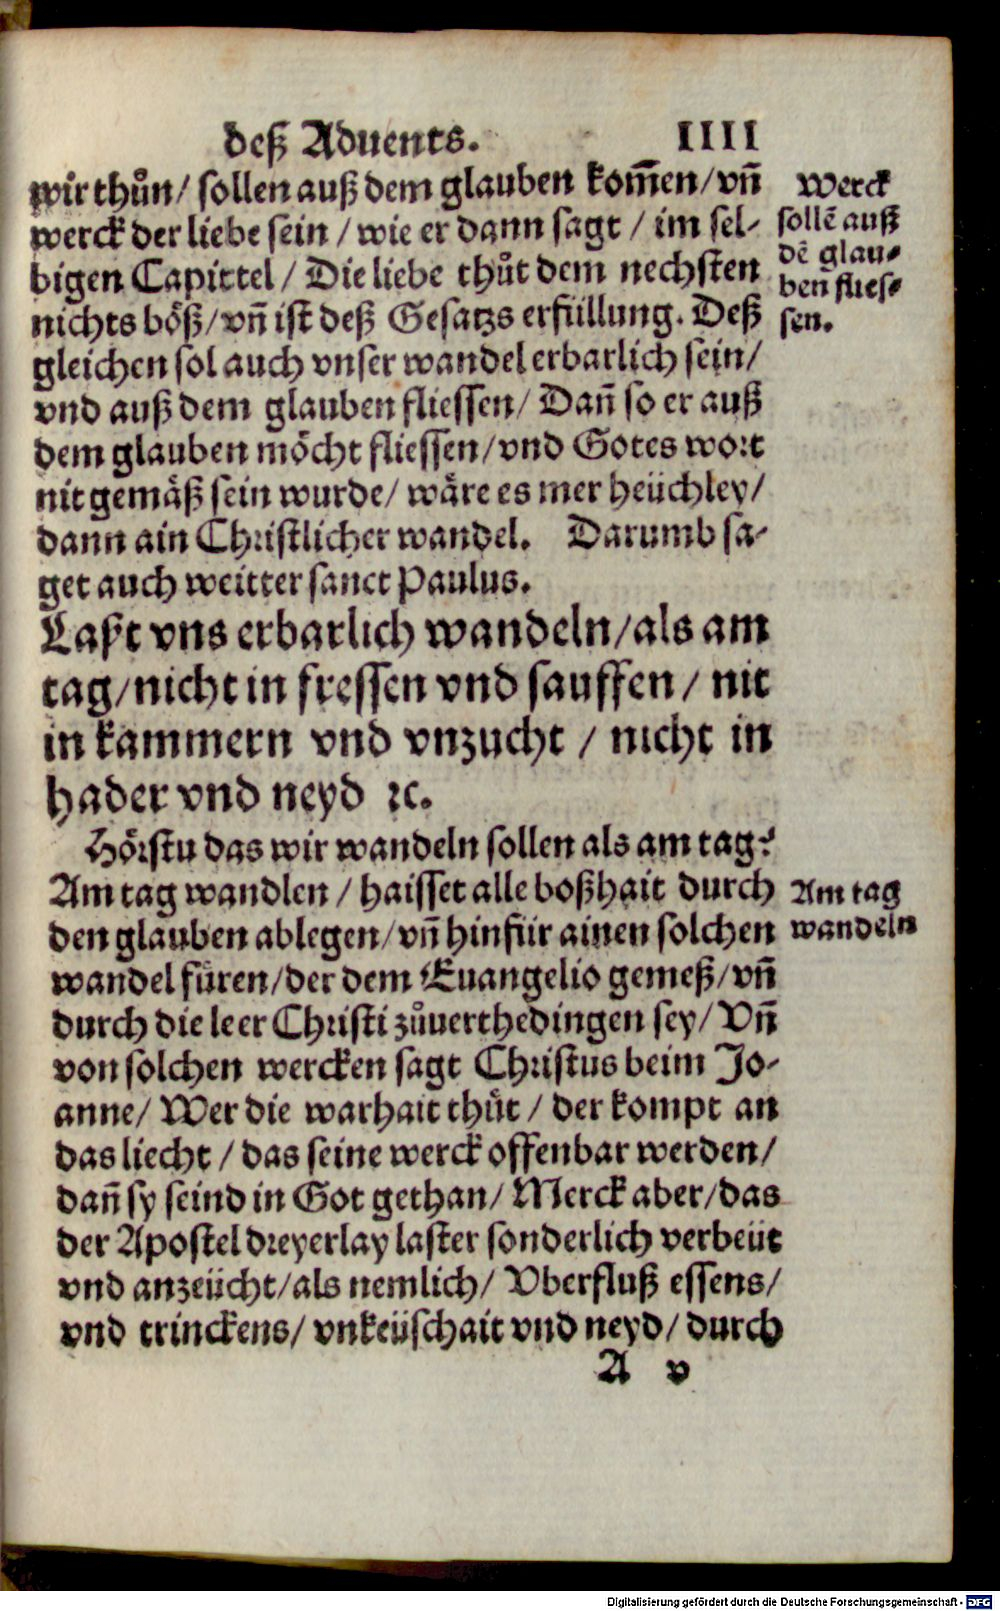 deß Aduents. IIII
wir thůn/ sollen auß dem glauben kom̃en/ vñ
werck der liebe sein / wie er dann sagt / im sel-
bigen Capittel / Die liebe thůt dem nechsten
nichts böß/ vñ ist deß Gesatzs erfüllung. Deß
gleichen sol auch vnser wandel erbarlich sein/
vnd auß dem glauben fliessen/ Dañ so er auß
dem glauben möcht fliessen/ vnd Gotes wort
nit gemäß sein wurde/ wäre es mer heüchley/
dann ain Christlicher wandel. Darumb sa-
get auch weitter sanct Paulus.
Laßt vns erbarlich wandeln/als am
tag/nicht in fressen vnd sauffen/ nit
in kammern vnd vnzucht / nicht in
hader vnd neyd ꝛc.
Hörstu das wir wandeln sollen als am tag?
Am tag wandlen / haisset alle boßhait durch
den glauben ablegen/ vñ hinfür ainen solchen
wandel füren/ der dem Euangelio gemeß/ vñ
durch die leer Christi zůuerthedingen sey/ Vñ
von solchen wercken sagt Christus beim Jo-
anne/ Wer die warhait thůt / der kompt an
das liecht / das seine werck offenbar werden/
dañ sy seind in Got gethan/ Merck aber/ das
der Apostel dreyerlay laster sonderlich verbeüt
vnd anzeücht/ als nemlich/ Vberfluß essens/
vnd trinckens/ vnkeüschait vnd neyd/ durch
A v
Werck
sollẽ auß
dẽ glau-
ben flies-
sen.
Am tag
wandeln
Digitalisierung gefördert durch die Deutsche Forschungsgemeinschaft - DFG